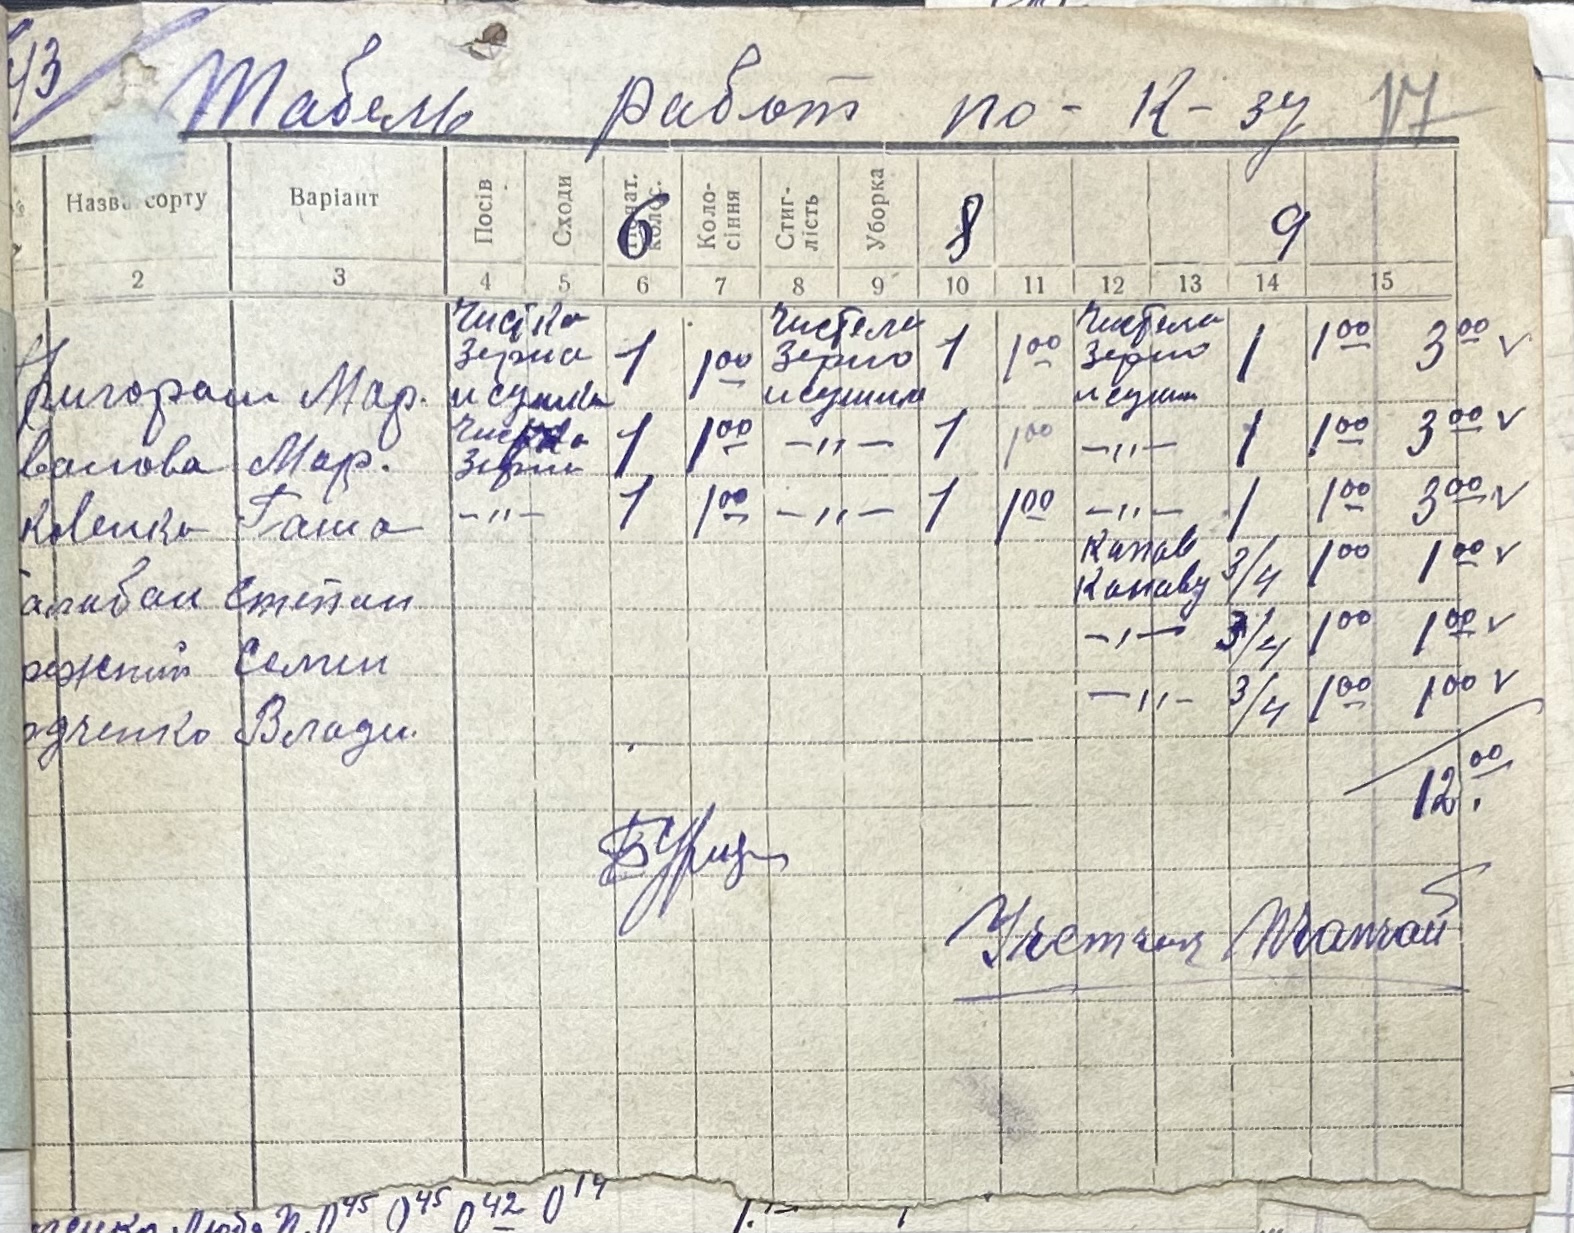 43 Табель работ по-К-зу 17
Назва сорту Варіант Посів Сходи Почат. колос. Коло-сіння Стиг-лість Уборка
6 8 9
2 3 4 5 6 7 8 9 10 11 12 13 14 15
Чистка Чистела Чистела
зерна 1 1 00 зерно 1 1 00 зерно 1 1 00 3 00 v
Григораш Мар. и сушка и сушила и сушил
Чистка
ванова Мар. зерна 1 1 00 -"- 1 1 00 -"- 1 1 00 3 00 v
ковенко Гаша -"- 1 1 00 -"- 1 1 00 -"- 1 1 00 3 00 v
Копав
алабан Степан Канаву 3/4 1 00 1 00 v
режний Семен -"- 3/4 1 00 1 00 v
дченко Влади. -"- 3/4 1 00 1 00 v
12. 00
Учетчик
енко Люба П. 0 45 0 45 0 42 0 14